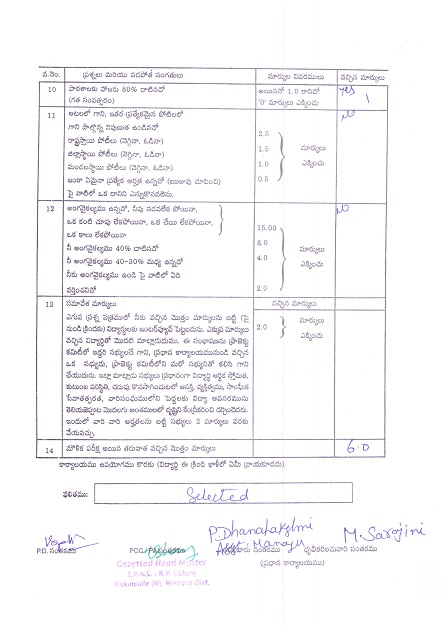 వ.నెం. ప్రశ్నలు మరియు పదపోత సంగతులు మార్కుల వివరములు వచ్చిన మార్కులు
10 పాఠశాలకు హాజరు 80% దాటినదో అయినచో 1.0 కానిచో yes
(గత సంవత్సరం) '0' మార్కులు ఎక్కించు 1
11 ఆటలలో గాని, ఇతర ప్రత్యేకమైన పోటీలలో NO
గాని పాల్గొన్న నిపుణత ఉండినచో 2.5
రాష్ట్రస్థాయి పోటీలు (నెగ్గినా, ఓడినా) 1.5 మార్కులు
జిల్లాస్థాయి పోటీలు (నెగ్గినా, ఓడినా) 1.0 ఎక్కించు
మండలస్థాయి పోటీలు (నెగ్గినా, ఓడినా) 0.5
ఇంకా ఏమైనా ప్రత్యేక అర్హత ఉన్నచో (ఋజువు చూపించి)
పై వాటిలో ఒక దానిని ఎన్నుకొనవలెను.
12 అంగవైకల్యము ఉన్నచో, నీవు నడవలేక పోయినా, NO
ఒక కంటి చూపు లేకపోయినా, ఒక చేయి లేకపోయినా, 15.00
ఒక కాలు లేకపోయినా 8.0 మార్కులు
నీ అంగవైకల్యము 40% దాటినచో 4.0 ఎక్కించు
నీ అంగవైకల్యము 40-30% మధ్య ఉన్నచో
నీకు అంగవైకల్యము ఉండి పై వాటిలో ఏది 2.0
వర్తించనిచో
13 సమావేశ మార్కులు వచ్చిన మార్కులు
ఎగువ ప్రశ్న పత్రములో నీకు వచ్చిన మొత్తం మార్కులను బట్టి (పై మార్కులు
నుండి క్రిందకు) విద్యార్థులకు ఇంటర్వ్యూవ్ పెట్టబడును. ఎక్కువ మార్కులు 2.0 ఎక్కించు
వచ్చిన విద్యార్థితో మొదట మాట్లాడుదుము. ఈ సంభాషణను ప్రాజెక్టు
కమిటీలో ఇద్దరి సభ్యులచే గాని, ప్రధాన కార్యాలయమునుండి వచ్చిన
ఒక సభ్యుడు, ప్రాజెక్ట్ కమిటీలోని మరో సభ్యునితో కలిసి గాని
చేయుదురు. ఇట్లా మాట్లాడు సభ్యులు ప్రధానంగా విద్యార్థి ఆర్థిక స్తోమత,
కుటుంబ పరిస్థితి, చదువు కొనసాగించుటలో ఆసక్తి, వ్యక్తిత్వము, సాంఘిక
సేవాతత్పరత, వారిసంఘములోని పెద్దలకు విద్యా అవసరమును
తెలియజెప్పుట మొదలగు అంశములలో దృష్టిని కేంద్రీకరించి చర్చించెదరు.
ఇందులో వారి వారి అర్హతలను బట్టి సభ్యులు 2 మార్కులు వరకు
వేయవచ్చు.
14 మౌళిక పరీక్ష అయిన తరువాత వచ్చిన మొత్తం మార్కులు 6.0
కార్యాలయము ఉపయోగము కొరకు (విద్యార్థి ఈ క్రింది ఖాళీలో ఏమీ వ్రాయకూడదు).
ఫలితము: Selected
P. Dhanalakshmi
Asst. Manager M. Sarojini
P.D. సంతకము PCC/ సంతకము వారు సంతకము ధృవీకరించువారి సంతకము
Gazetted Head Master (ప్రధాన కార్యాలయము)
Z.P.H.S. - R.P. Colony
Mukunpalle (M). Dist.